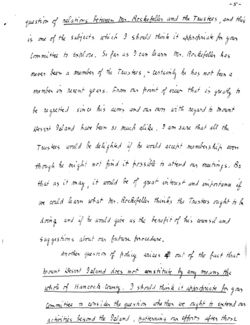 -5-
question of relations between Mr. Rockefeller and the Trustees, and this
is one of the subjects which I should think it appropriate for your
Committee to explore. So far as I can learn Mr. Rockefeller has
never been a member of the Trustees, - certainly he has not been a
member in recent years. From our point of view that is greatly to
be regretted since his aims and our own with regard to Mount
Desert Island have been so much alike. I am sure that all the
Trustees would be delighted if he would accept membership even
though he might not find it possible to attend our meetings. Be
that as it may, it would be of great interest and importance if
we could learn what Mr. Rockefeller thinks the Trustees ought to be
doing and if he would give us the benefit of his counsel and
suggestions about our future procedure.
Another question of policy arises out of the fact that
Mount Desert Island does not constitute by any means the
whole of Hancock County. I should think it appropriate for your
Committee to consider the question whether we ought to extend our
activities beyond the Island, patterning our efforts after those